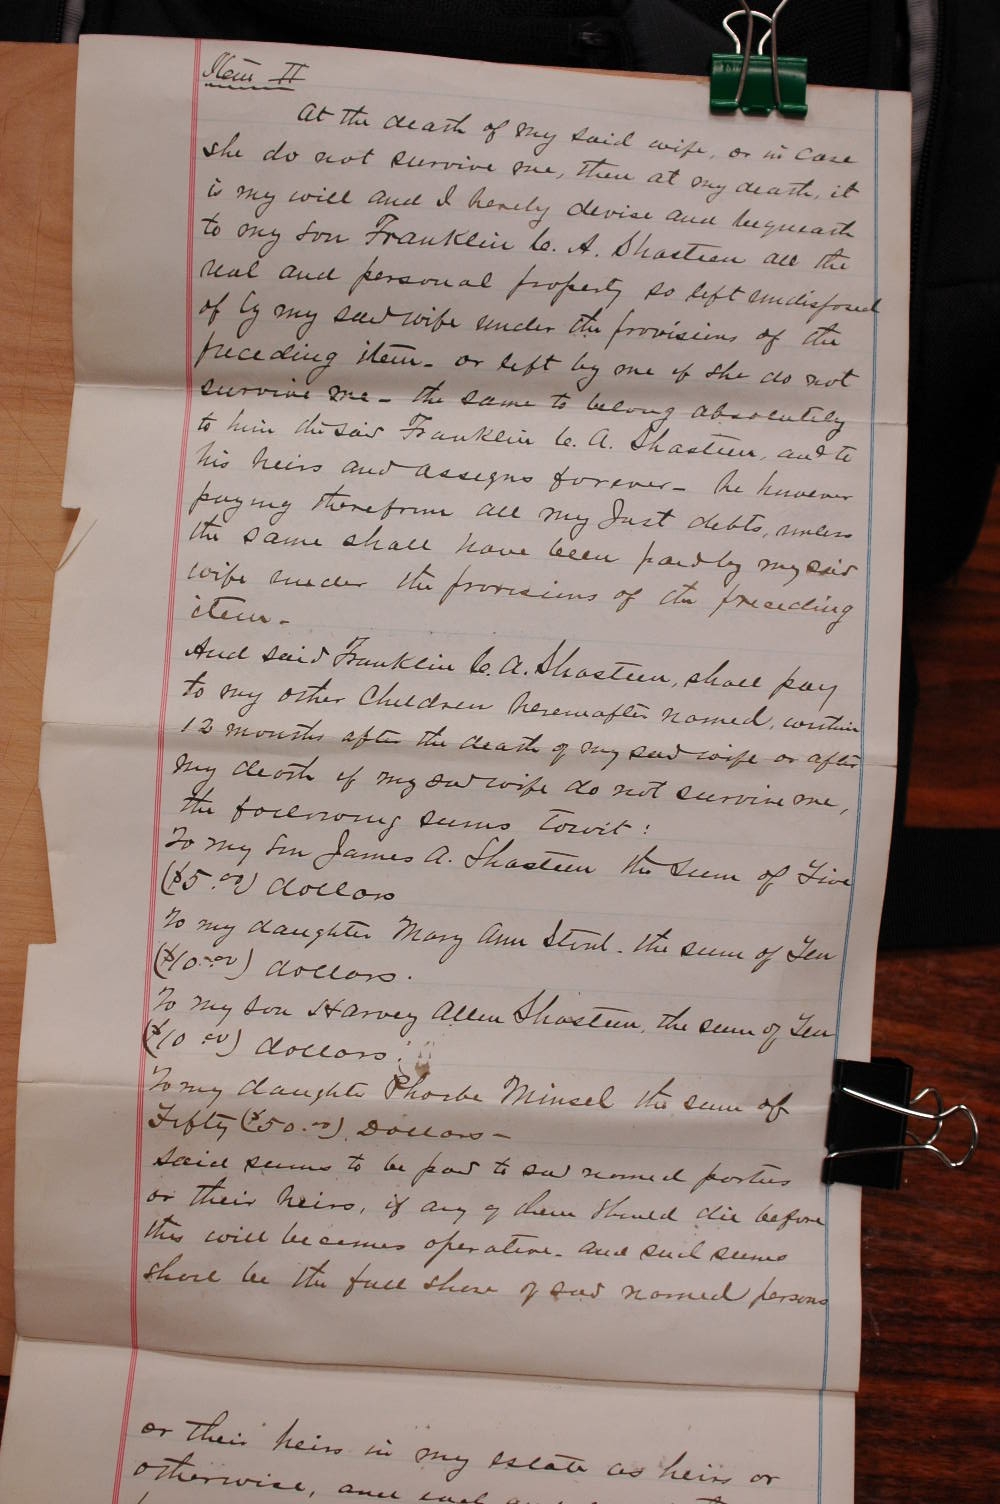 Item II
At the death of my said wife, or in case
she do not survive me, then at my death, it
is my will and I hereby devise and bequeath
to my son Franklin C. A. Shasteen all the
real and personal property so left undisposed
of by my said wife under the provisions of the
preceding item - or left by me if she do not
survive me - the same to belong absolutely
to him the said Franklin C. A. Shasteen, and to
his heirs and assigns forever - he however
paying therefrom all my Just debts, unless
the same shall have been paid by my said
wife under the provisions of the preceding
item -
And said Franklin C. A. Shasteen, shall pay
to my other Children hereafter named, within
12 months after the death of my said wife or after
my death if my said wife do not survive me,
the following sums towit:
To my son James A. Shasteen the sum of Five
($5.00) dollars
To my daughter Mary Ann - the sum of Ten
($10.00) dollars.
To my son Harvey Allen Shasteen, the sum of Ten
($10.00) dollars.
To my daughter Phoebe Minsel the sum of
Fifty ($50.00) Dollars -
said sums to be paid to said named parties
or their heirs, if any of them should die before
this will becomes operative - and such sums
shall be the full share of said named persons
or their heirs in my estate as heirs or
otherwise, and